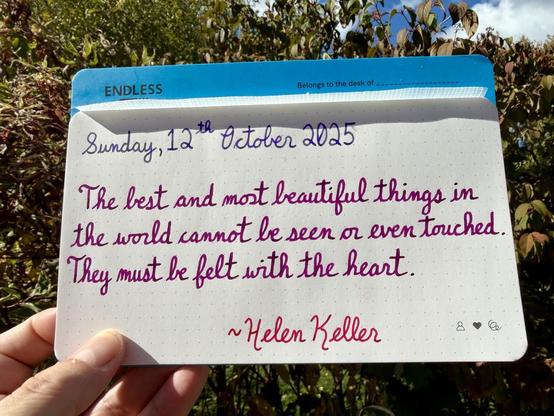 ENDLESS
Belongs to the desk of
Sunday, 12th October 2025
The best and most beautiful things in
the world cannot be seen or even touched.
They must be felt with the heart.
~Helen Keller